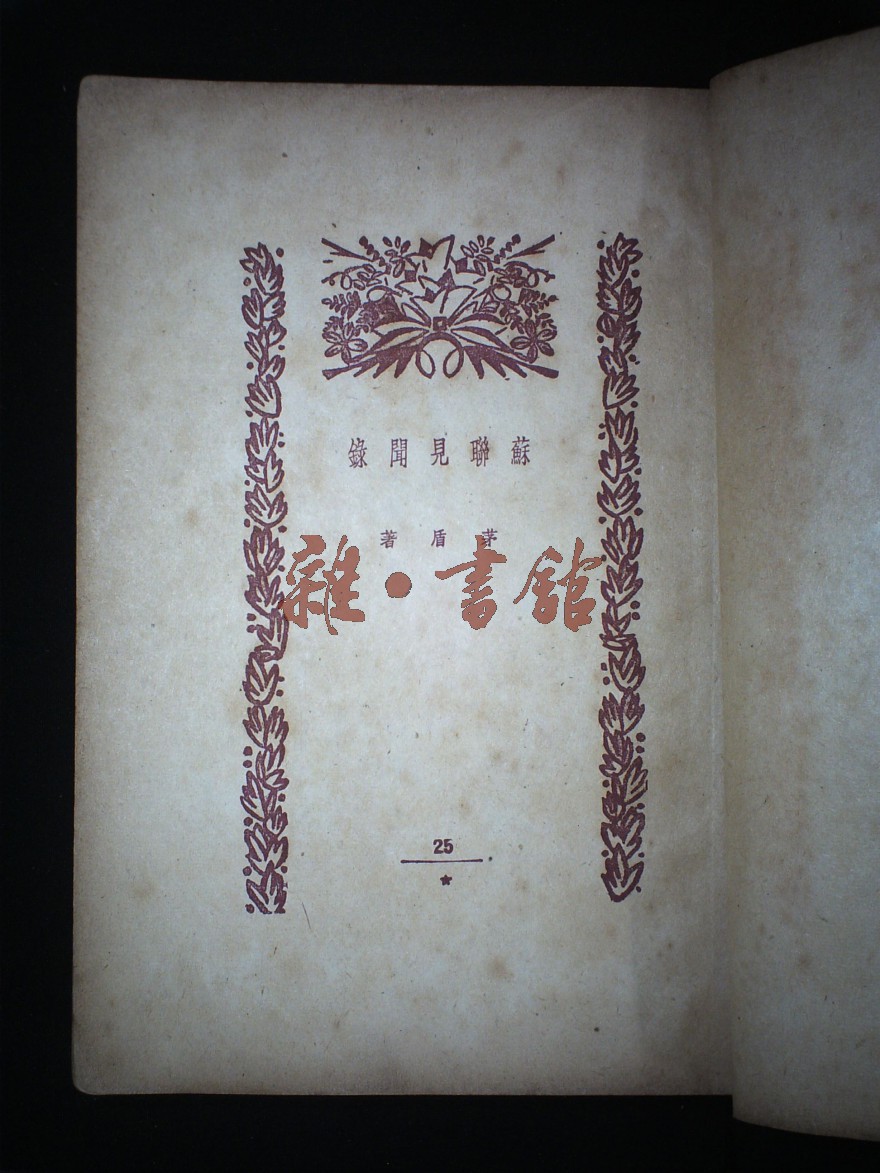 蘇聯見聞錄
茅盾著
雜·書館
25